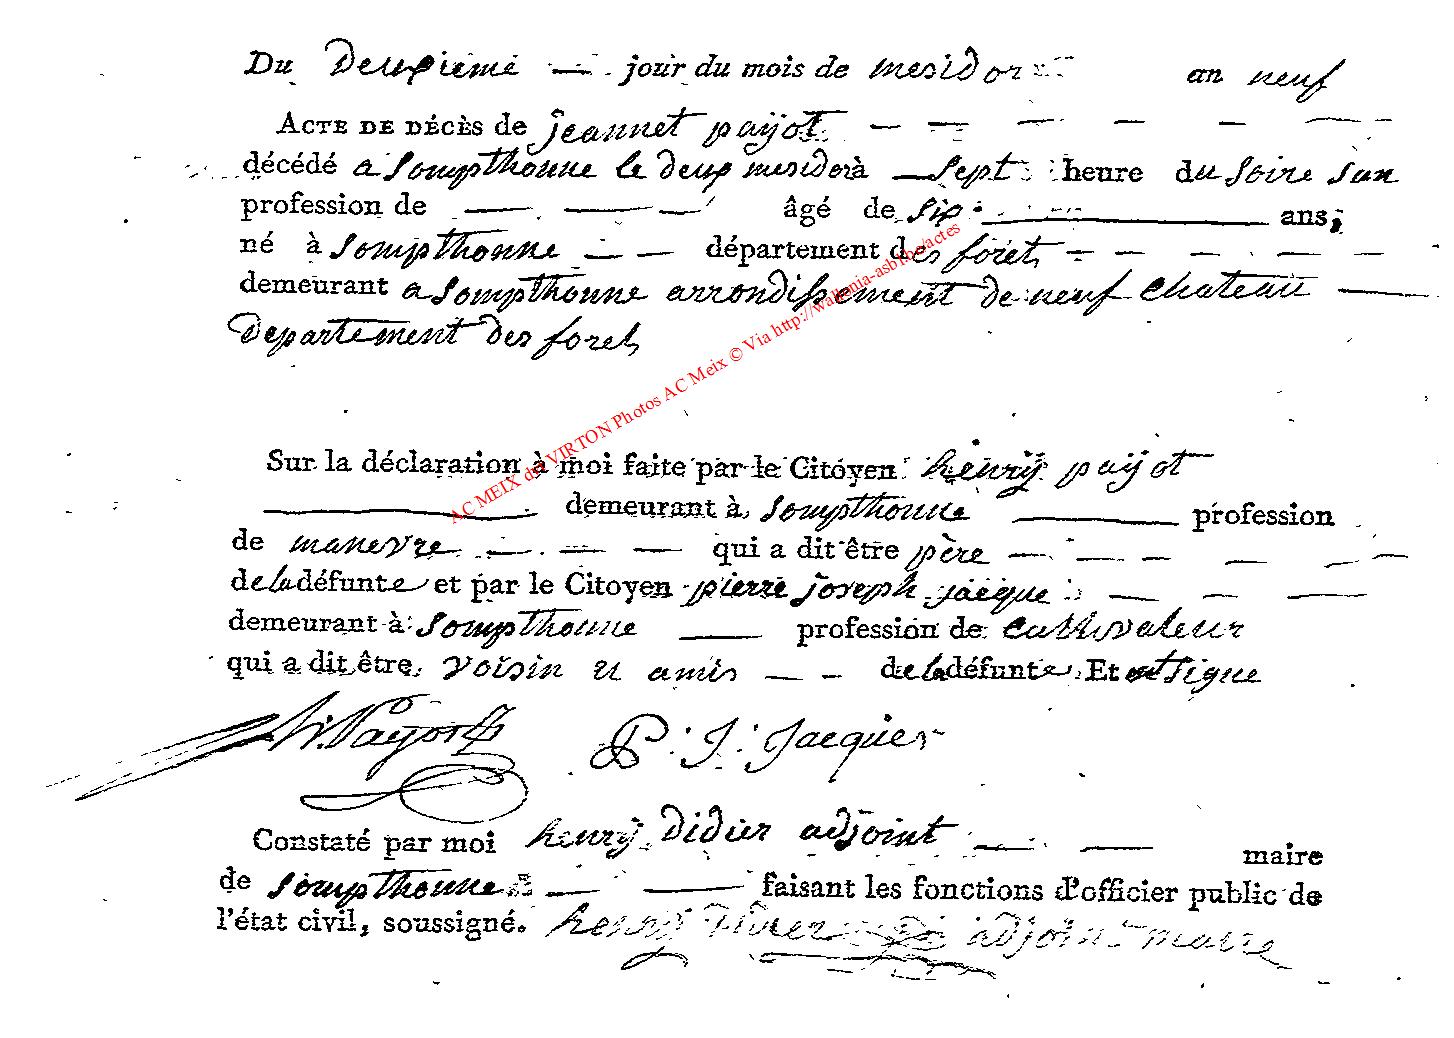 Du Deuxieme jour du mois de mesidor an neuf
ACTE DE DÉCÈS de jeannet payot
décédé a Sompthonne le deux mesidor à sept heure du soire san
profession de âgé de six ans,
né à Sompthonne département des foret
demeurant a Sompthonne arrondissement de neuf chateau
departement des foret
Sur la déclaration à moi faite par le Citoyen henry payot
demeurant à Sompthonne profession
de manevre qui a dit être père
de la défunte et par le Citoyen pierre joseph jacque
demeurant à Sompthonne profession de cultivateur
qui a dit être voisin et amis de la défunte. Et ont signe
h. Payot P. J. Jacques
Constaté par moi henry didier adjoint maire
de Sompthonne faisant les fonctions d'officier public de
l'état civil, soussigné. henry didier adjoint maire
AC MEIX dvt VIRTON Photos AC Meix © Via http://wallonia-asbl.be/actes